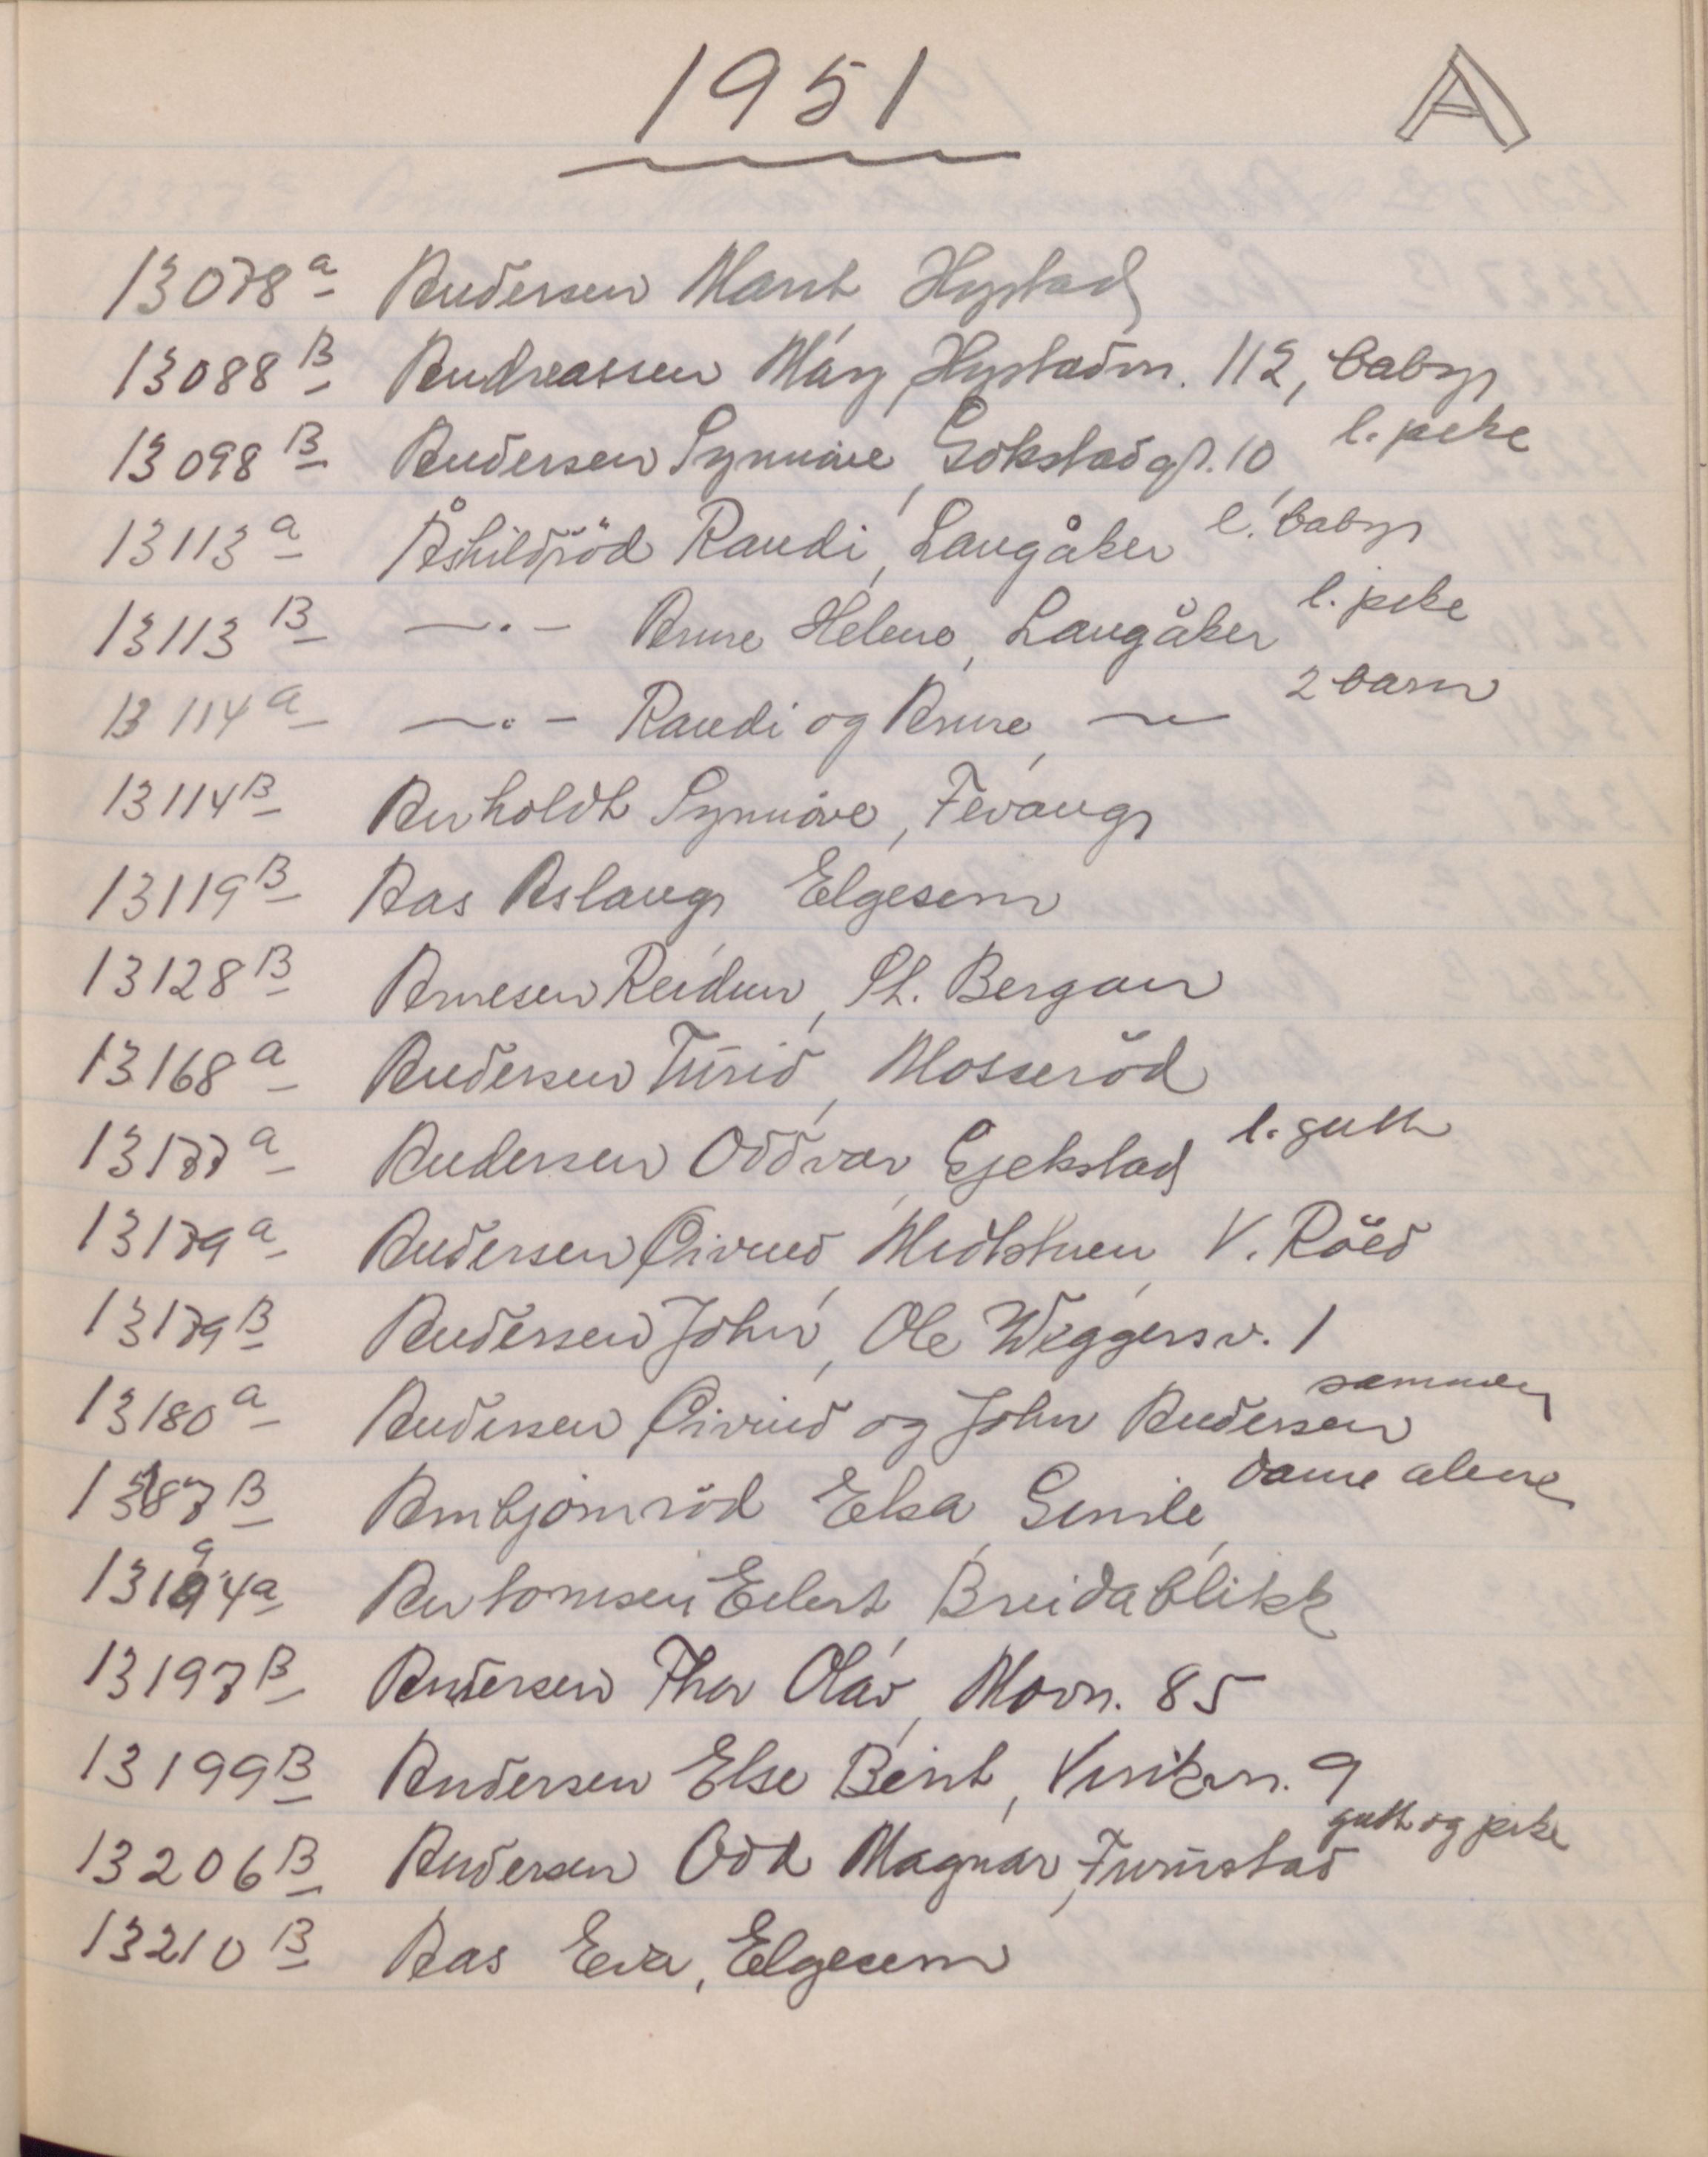 1951 A
13078 a Andersen Marit Hystad
13088 B Andreassen Mary, Hystadvn. 112, baby
13098 B Andersen Synnöve, Gokstadgt. 10, l. pike
13113 a Åshildröd Randi, Langåker l. baby
13113 B —·— Anne Helene, Langåker l. pike
13114 a —·— Randi og Anne, — 2 barn
13114 B Anholdt Synnöve, Fevang
13119 B Aas Aslaug Elgesem
13128 B Arnesen Reidun, St. Bergan
13168 a Andersen Turid, Mosseröd
13177 a Andersen Oddvar, Gjekstad l. gutt
13179 a Andersen Öivind, Midtstuen, V. Röed
13179 B Andersen John, Ole Weggersv. 1
13180 a Andersen Öivind og John Andersen sammen
13187 B Arnbjörnröd Elsa, Gimle, dame alene
13194 a Antonsen Eilert, Breidablikk
13197 B Andersen Thor Olav, Movn. 85
13199 B Andersen Else Berit, Vesikvn. 9
13206 B Andersen Odd Magnar, Furustad gutt og pike
13210 B Aas Eva, Elgesem